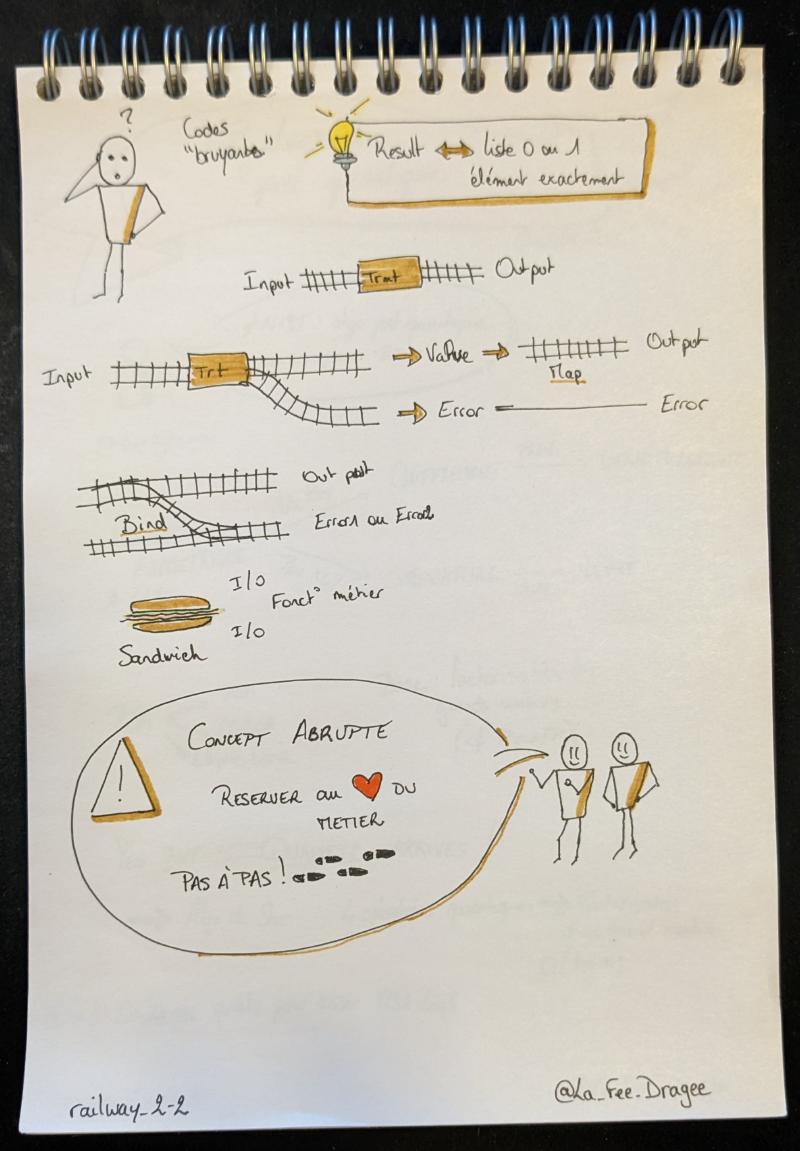 ?
Codes
"bruyants"
Result ⟷ liste 0 ou 1
élément exactement
Input Trmt Output
Input Trt → Value → Map Output
→ Error Error
Bind Out put
Error1 ou Error2
I/O
Fonct° métier
I/O
Sandwich
!
CONCEPT ABRUPTE
RESERVER au ❤ DU
METIER
PAS À PAS !
railway_2-2
@La_Fee_Dragee